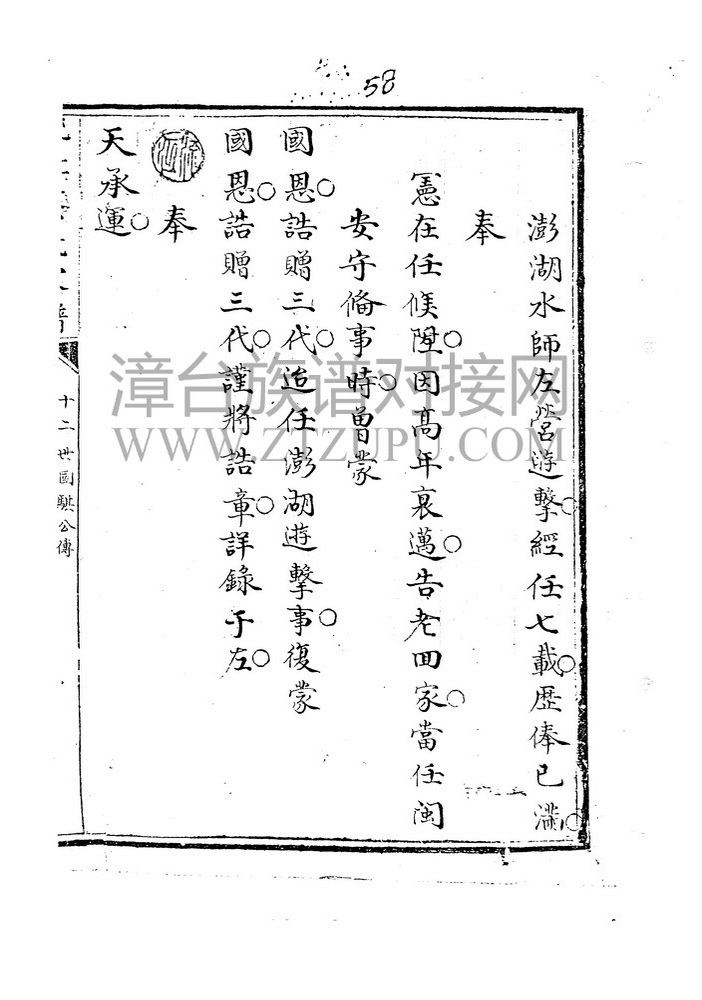 58
澎湖水師左營遊擊○經任七載○歷俸已滿○
奉
憲在任候陞○因高年衰邁○告老回家○當任閩
安守備事時○曾蒙
國恩○誥贈三代○迨任澎湖遊擊事○復蒙
國恩○誥贈三代○謹將誥章○詳錄于左○
奉
天承運○
十二世國騏公傳
漳台族谱对接网
WWW.ZTZUPU.COM